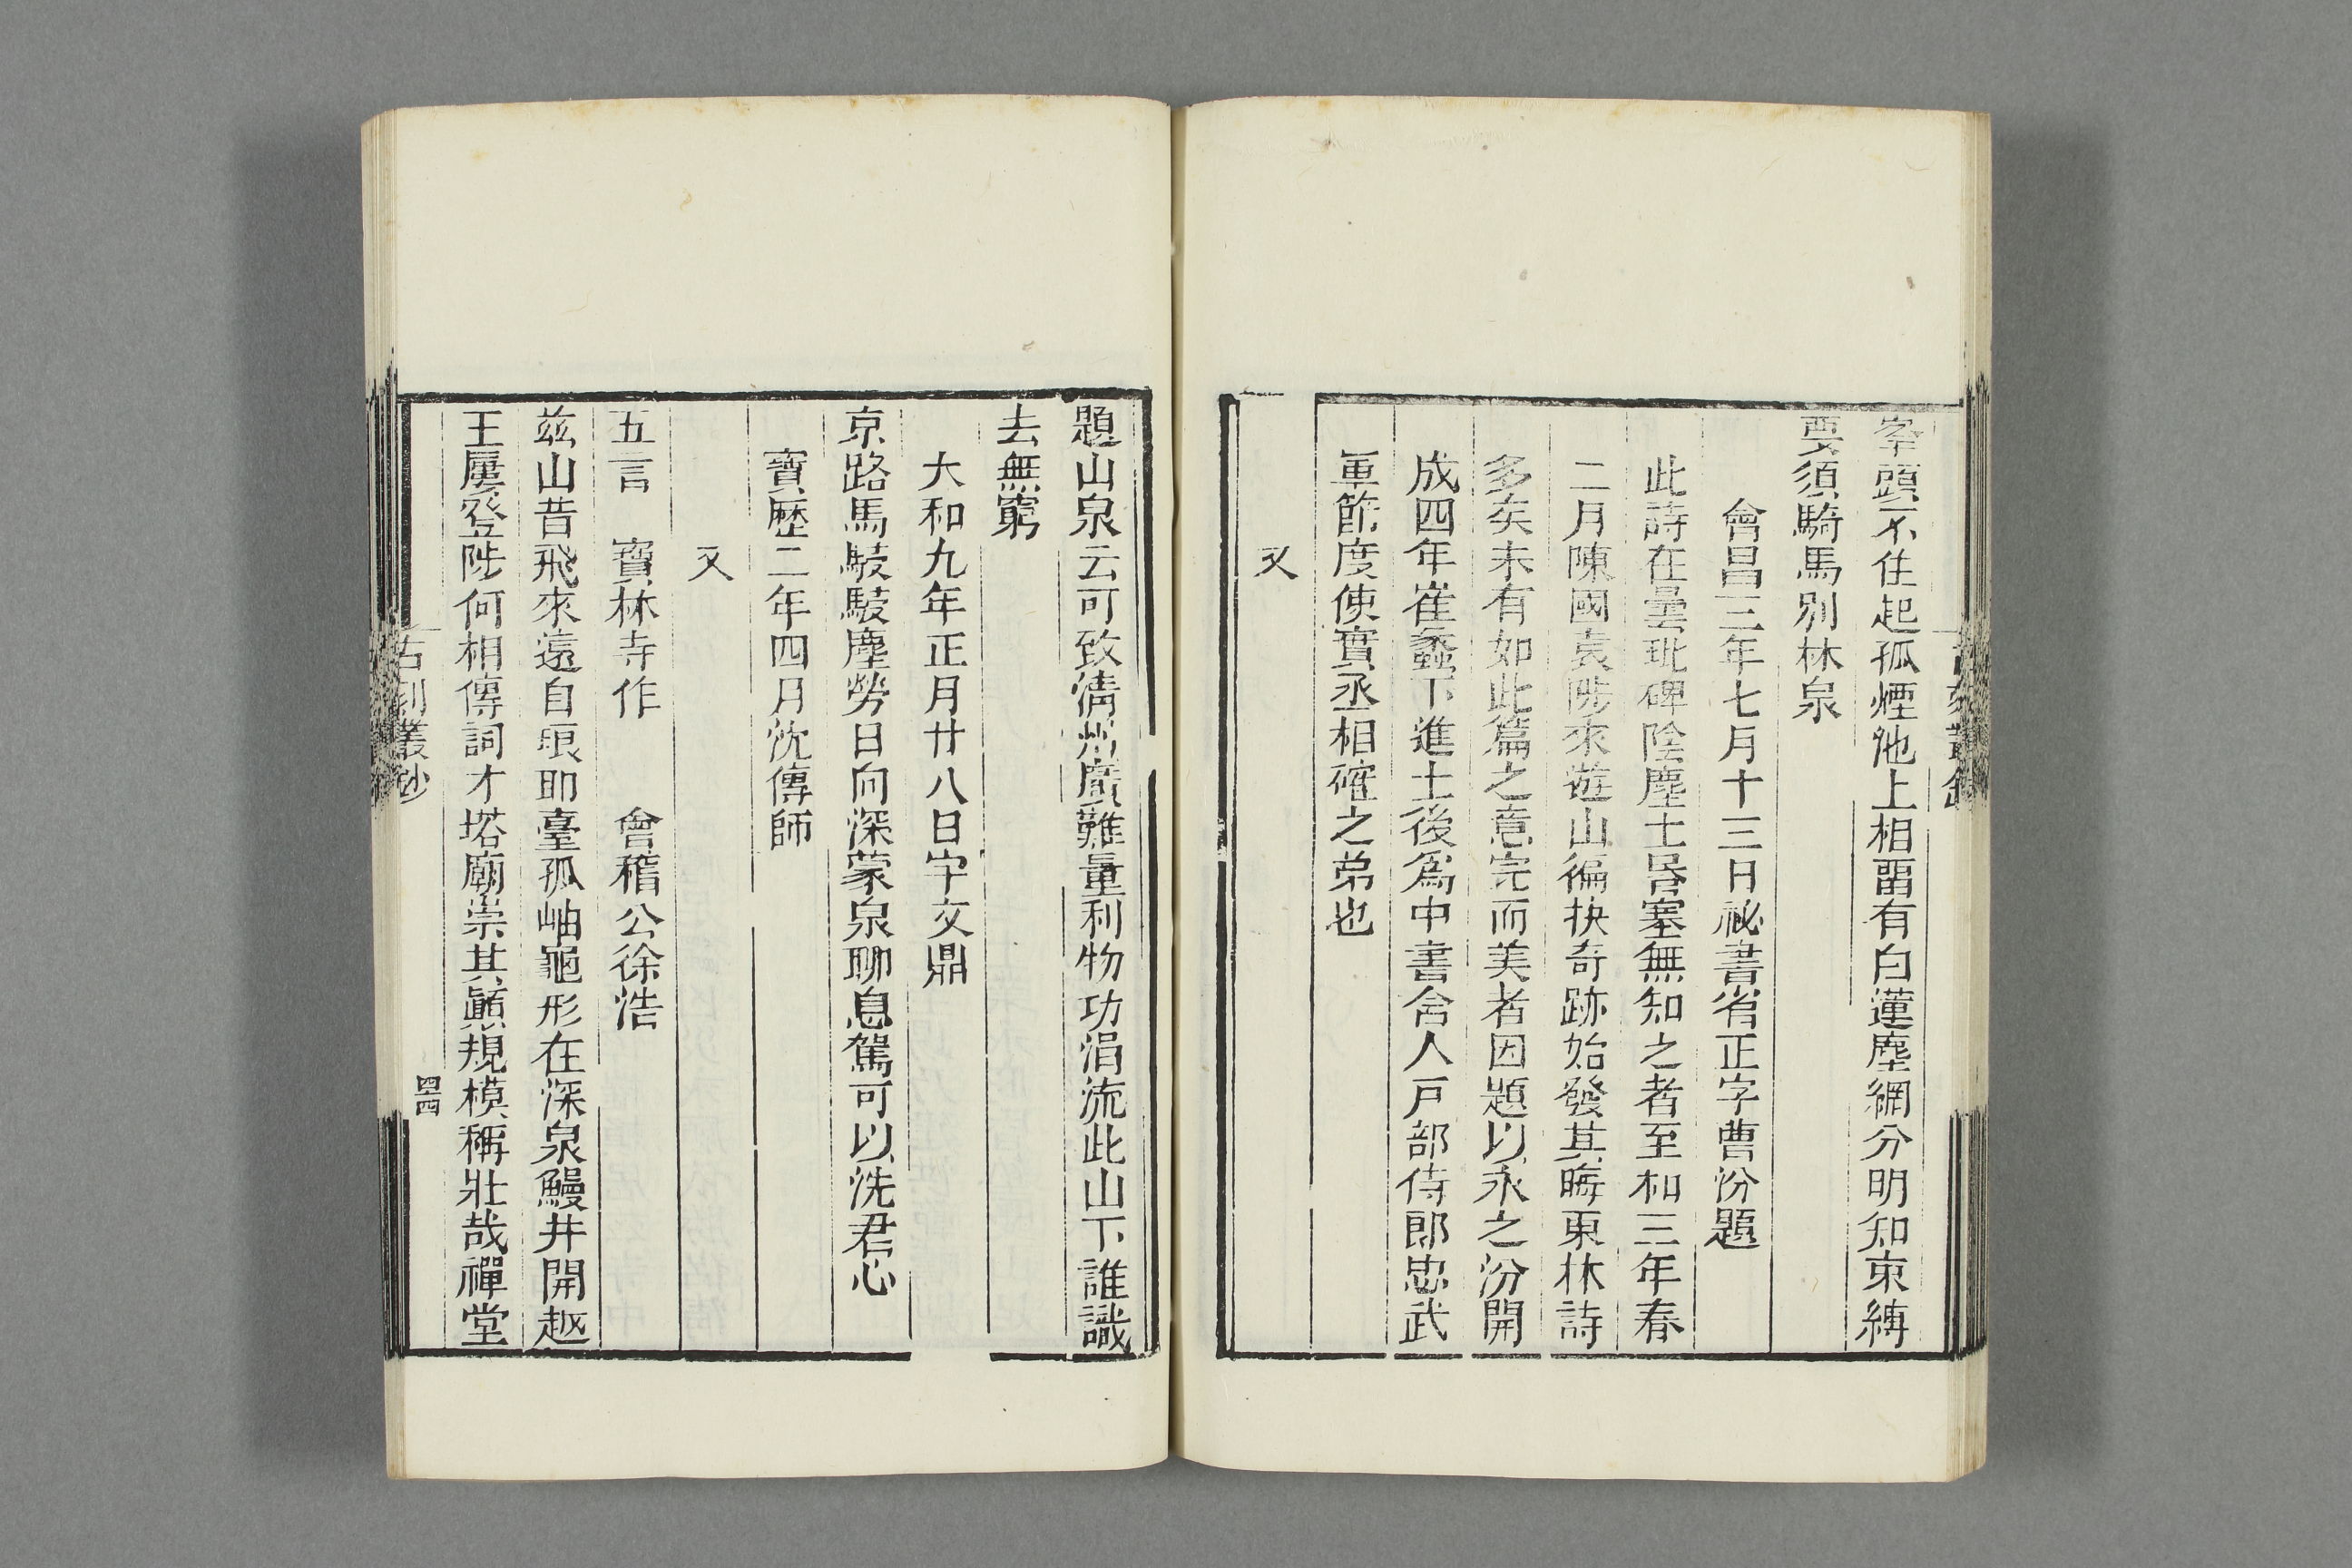 峯頭不住起孤煙池上相畱有白蓮塵網分明知束縛
要須騎馬別林泉
會昌三年七月十三日祕書省正字曹汾題
此詩在曇玭碑陰塵土昬塞無知之者至和三年春
二月陳國袁陟來遊山徧抉奇跡始發其晦東林詩
多矣未有如此篇之意完而美者因題以永之汾開
成四年崔蠡下進士後爲中書舍人戸部侍郎忠武
軍節度使實丞相確之弟也
又
題山泉云可致清州廣難量利物功涓流此山下誰識
去無窮
大和九年正月廿八日宇文鼎
京路馬駸駸塵勞日向深蒙泉聊息駕可以洗君心
寶歷二年四月沈傳師
又
五言 寶林寺作 會稽公徐浩
茲山昔飛來遠自琅邪臺孤岫龜形在深泉鰻井開越
王屢登陟何相傳詞才塔廟崇其巔規模稱壯哉禪堂
古刻叢鈔
四四